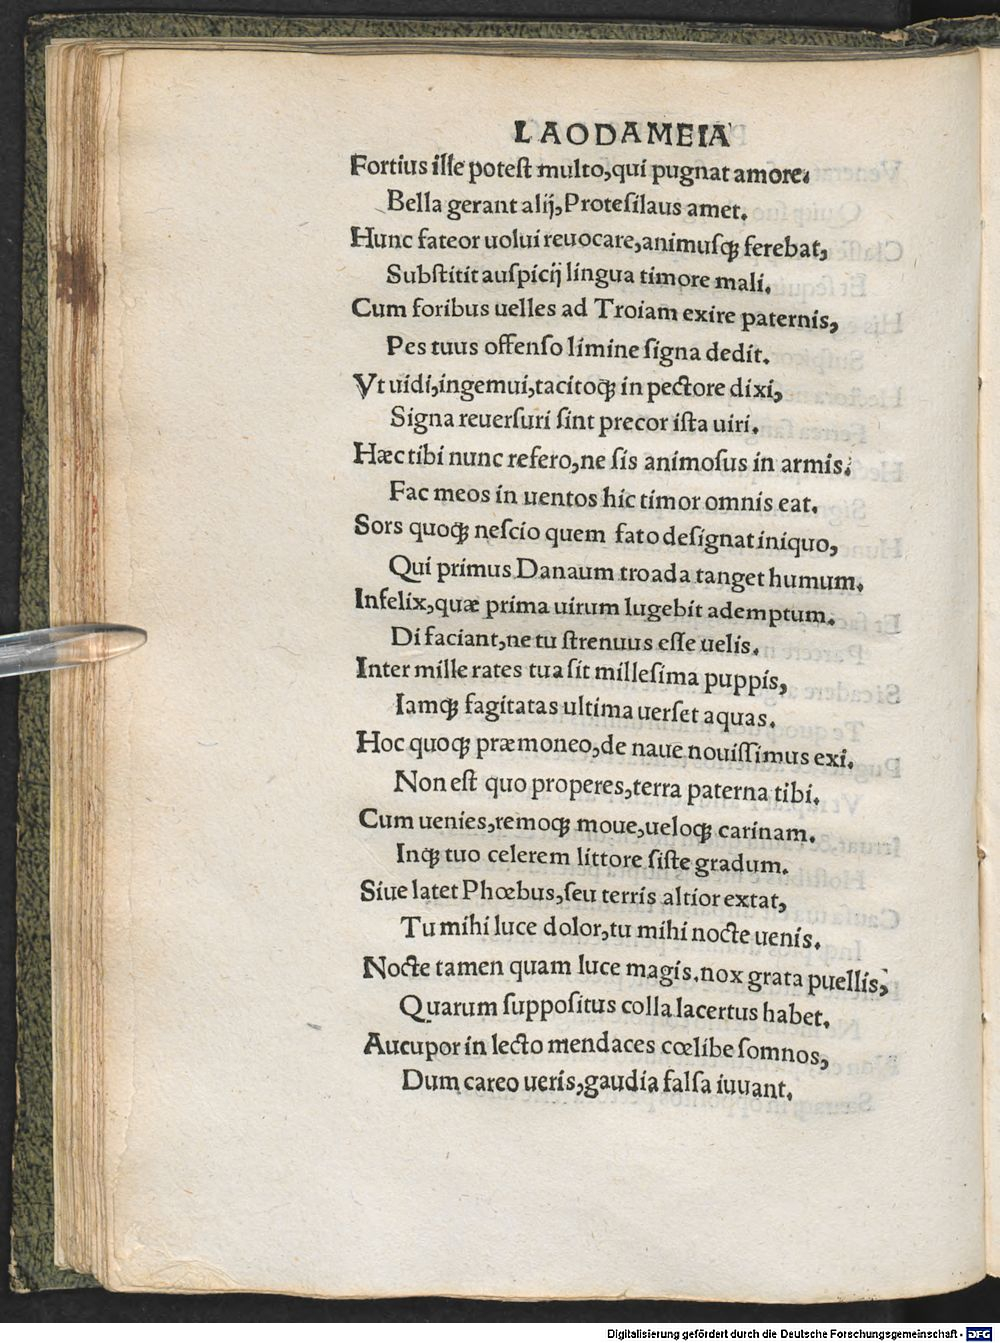 LAODAMEIA
Fortius ille poteſt multo,qui pugnat amore.
Bella gerant alij,Proteſilaus amet.
Hunc fateor uolui reuocare,animuſqꝫ ferebat,
Subſtitit auſpicij lingua timore mali.
Cum foribus uelles ad Troiam exire paternis,
Pes tuus offenſo limine ſigna dedit.
Vt uidi,ingemui,tacitoqꝫ in pectore dixi,
Signa reuerſuri ſint precor iſta uiri.
Hæc tibi nunc refero,ne ſis animoſus in armis.
Fac meos in uentos hic timor omnis eat.
Sors quoqꝫ neſcio quem fato deſignat iniquo,
Qui primus Danaum troada tanget humum.
Infelix,quæ prima uirum lugebit ademptum.
Di faciant,ne tu ſtrenuus eſſe uelis.
Inter mille rates tua ſit milleſima puppis,
Iamqꝫ fagitatas ultima uerſet aquas.
Hoc quoqꝫ præmoneo,de naue nouiſſimus exi.
Non eſt quo properes,terra paterna tibi.
Cum uenies,remoqꝫ moue,ueloqꝫ carinam.
Inqꝫ tuo celerem littore ſiſte gradum.
Siue latet Phœbus,ſeu terris altior extat,
Tu mihi luce dolor,tu mihi nocte uenis.
Nocte tamen quam luce magis.nox grata puellis,
Quarum ſuppoſitus colla lacertus habet.
Aucupor in lecto mendaces cœlibe ſomnos,
Dum careo ueris,gaudia falſa iuuant.
Digitalisierung gefördert durch die Deutsche Forschungsgemeinschaft - DFG